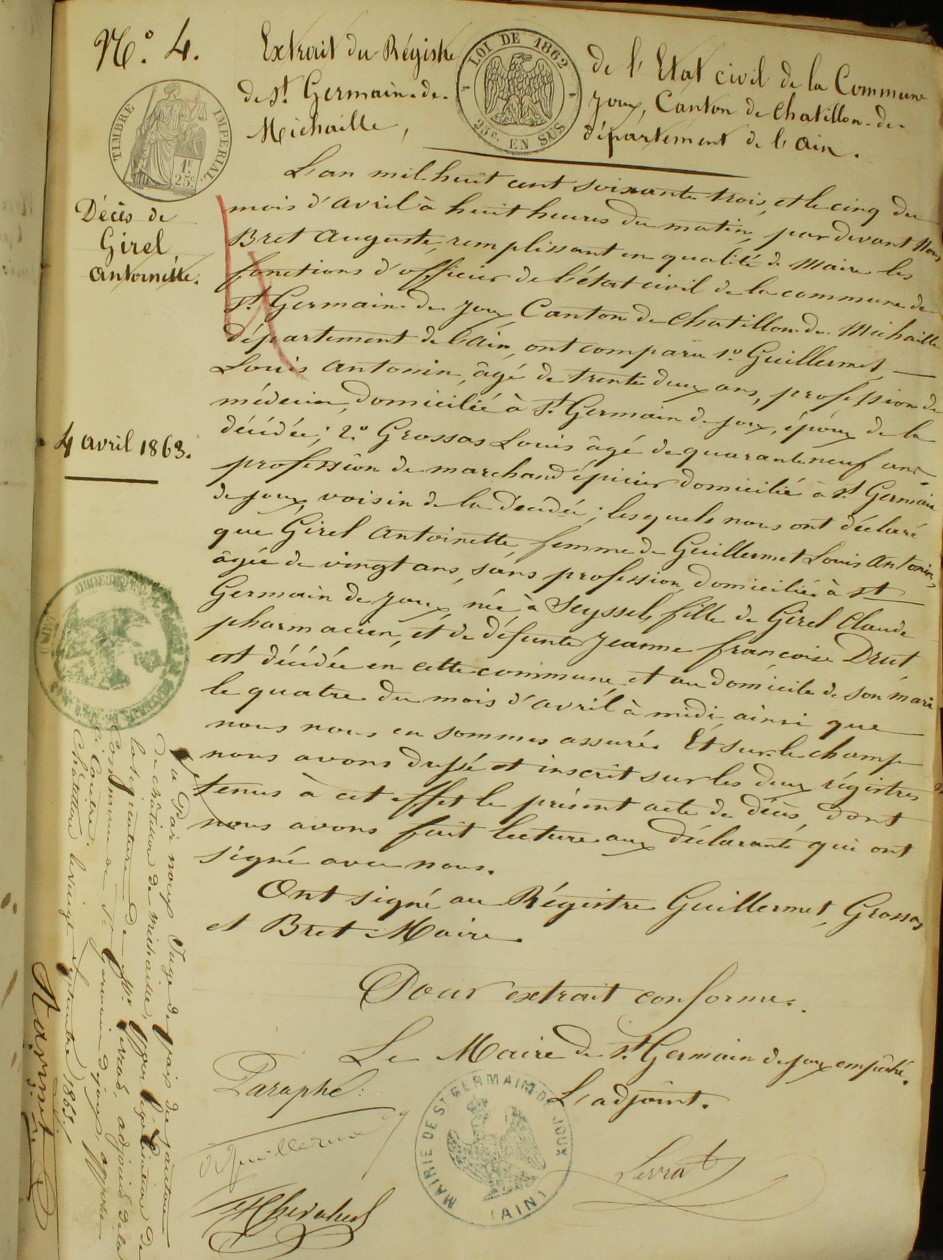 N.º 4.
Extrait du Régistre de l'Etat civil de la Commune
de St Germain-de-Joux, Canton de Chatillon-de-
Michaille, département de l'Ain.
LOI DE 1862
25c. EN SUS
TIMBRE IMPERIAL
1F.
25c
Décès de
Girel
Antoinette.
4 avril 1863.
L'an mil huit cent soixante trois, et le cinq du
mois d'avril à huit heures du matin, par devant Nous
Bret Auguste, remplissant en qualité de Maire les
fonctions d'officier de l'état civil de la commune de
St Germain de Joux Canton de Chatillon de Michaille
département de l'Ain, ont comparu 1º Guillermet
Louis Antonin, âgé de trente deux ans, profession de
médecin, domiciliée à St Germain de joux, époux de la
décédée; 2º Grossas Louis âgé de quarante neuf ans
profession de marchand épicier domicilié à St Germain
de joux, voisin de la décédée; lesquels nous ont déclaré
que Girel Antoinette, femme de Guillermet Louis Antonin,
âgée de vingt ans, sans profession, domiciliée à St
Germain de Joux, née à Seyssel, fille de Girel Claude
pharmacien, et de défunte Jeanne françoise Drut
est décédée en cette commune et au domicile de son mari
le quatre du mois d'avril à midi ainsi que
nous nous en sommes assuré. Et sur le champ
nous avons dressé et inscrit sur les deux régistres
tenus à cet effet le présent acte de décès, dont
nous avons fait lecture aux déclarants qui ont
signé avec nous.
Ont signé au Régistre Guillermet, Grossas
et Bret Maire.
Pour extrait conforme.
Le Maire de St Germain de joux empêché.
L'adjoint.
Paraphé:
MAIRIE DE ST GERMAIN DE JOUX
(AIN)
Vu Par nous Juge de paix du canton
de châtillon de michaille,
la signature de Mr. Levrat, adjoint de la
commune de St Germain de joux, apposée
Châtillon le vingt septembre 1865.